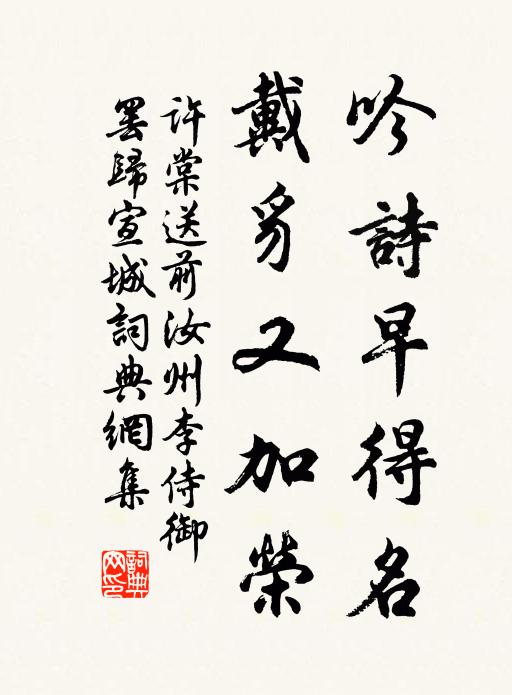 吟詩早得名
戴豸又加榮
許棠送前汝州李侍御
罷歸宣城詞典網集
詞典
網印